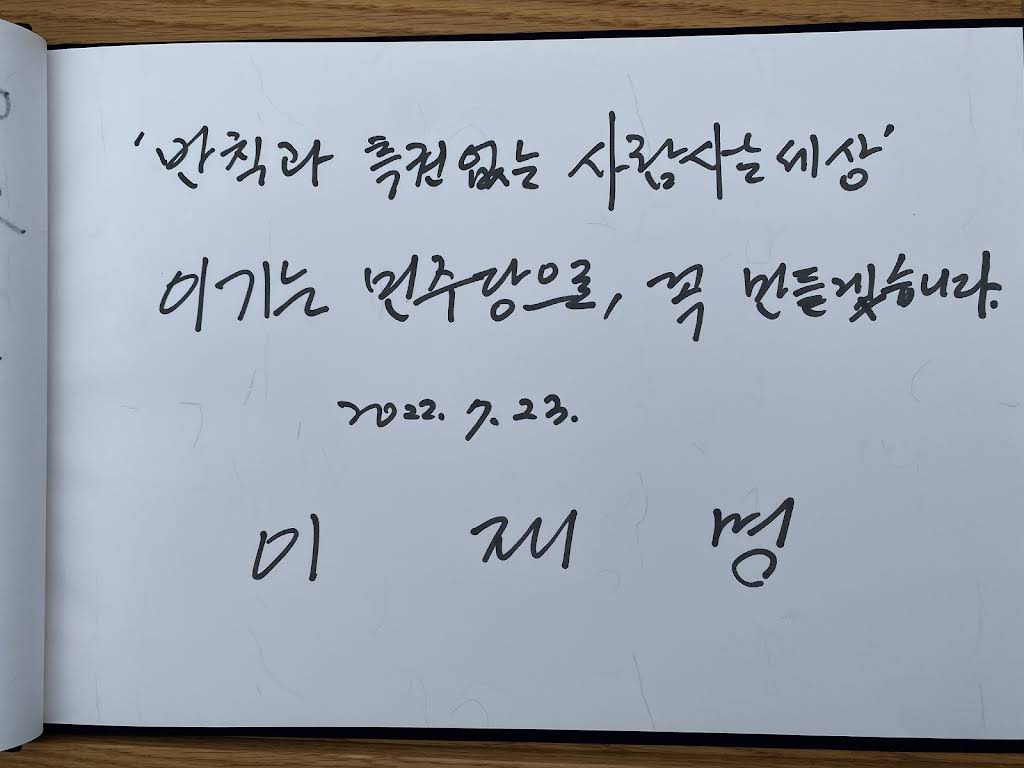 '반칙과 특권없는 사람사는세상'
이기는 민주당으로, 꼭 만들겠습니다.
2022. 7. 23.
이 재 명